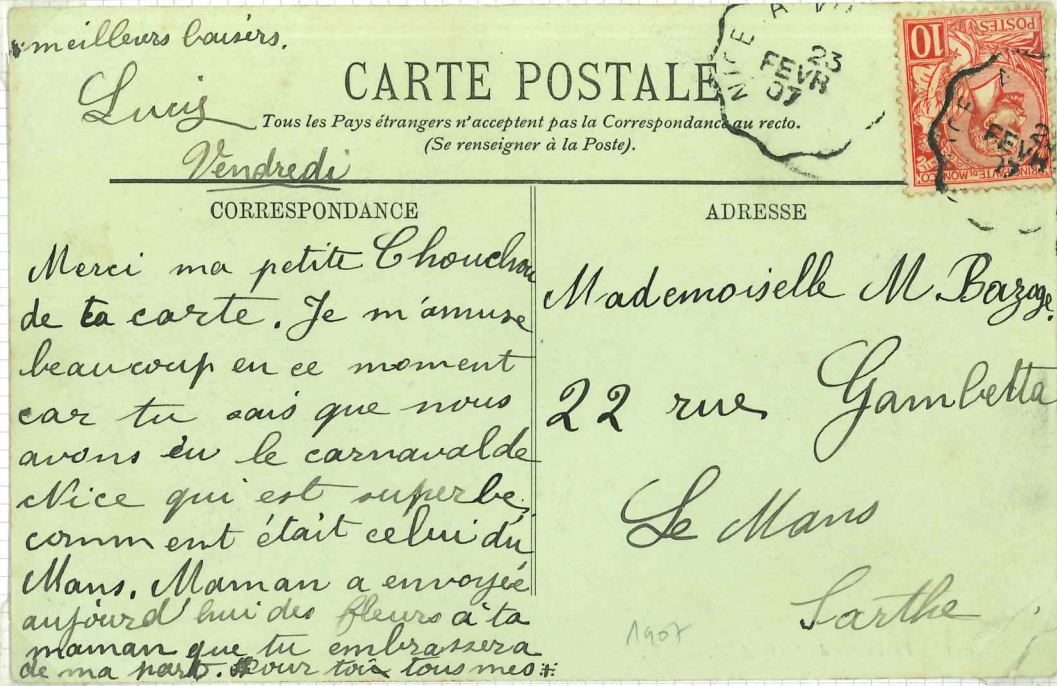 meilleurs baisers.
Lucie
Vendredi
CARTE POSTALE
Tous les Pays étrangers n'acceptent pas la Correspondance au recto.
(Se renseigner à la Poste).
NICE A VI
23
FEVR
07
POSTES
10
PRINCIPAUTÉ DE MONACO
CORRESPONDANCE
Merci ma petite Chouchou
de ta carte. Je m'amuse
beaucoup en ce moment
car tu sais que nous
avons eu le carnaval de
Nice qui est superbe,
comment était celui du
Mans. Maman a envoyée
aujourd'hui des fleurs à ta
maman que tu embrassera
de ma part. Pour toi tous mes
ADRESSE
Mademoiselle M. Bazoge.
22 rue Gambetta
Le Mans
Sarthe
1907